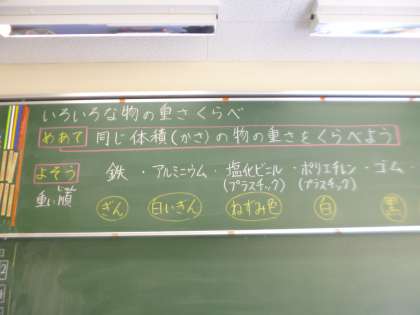 いろいろな物の重さくらべ
めあて 同じ体積(かさ)の物の重さをくらべよう
よそう 鉄・アルミニウム・塩化ビニル・ポリエチレン・ゴム
(プラスチック) (プラスチック)
重い順 ぎん 白いぎん ねずみ色 白 黒